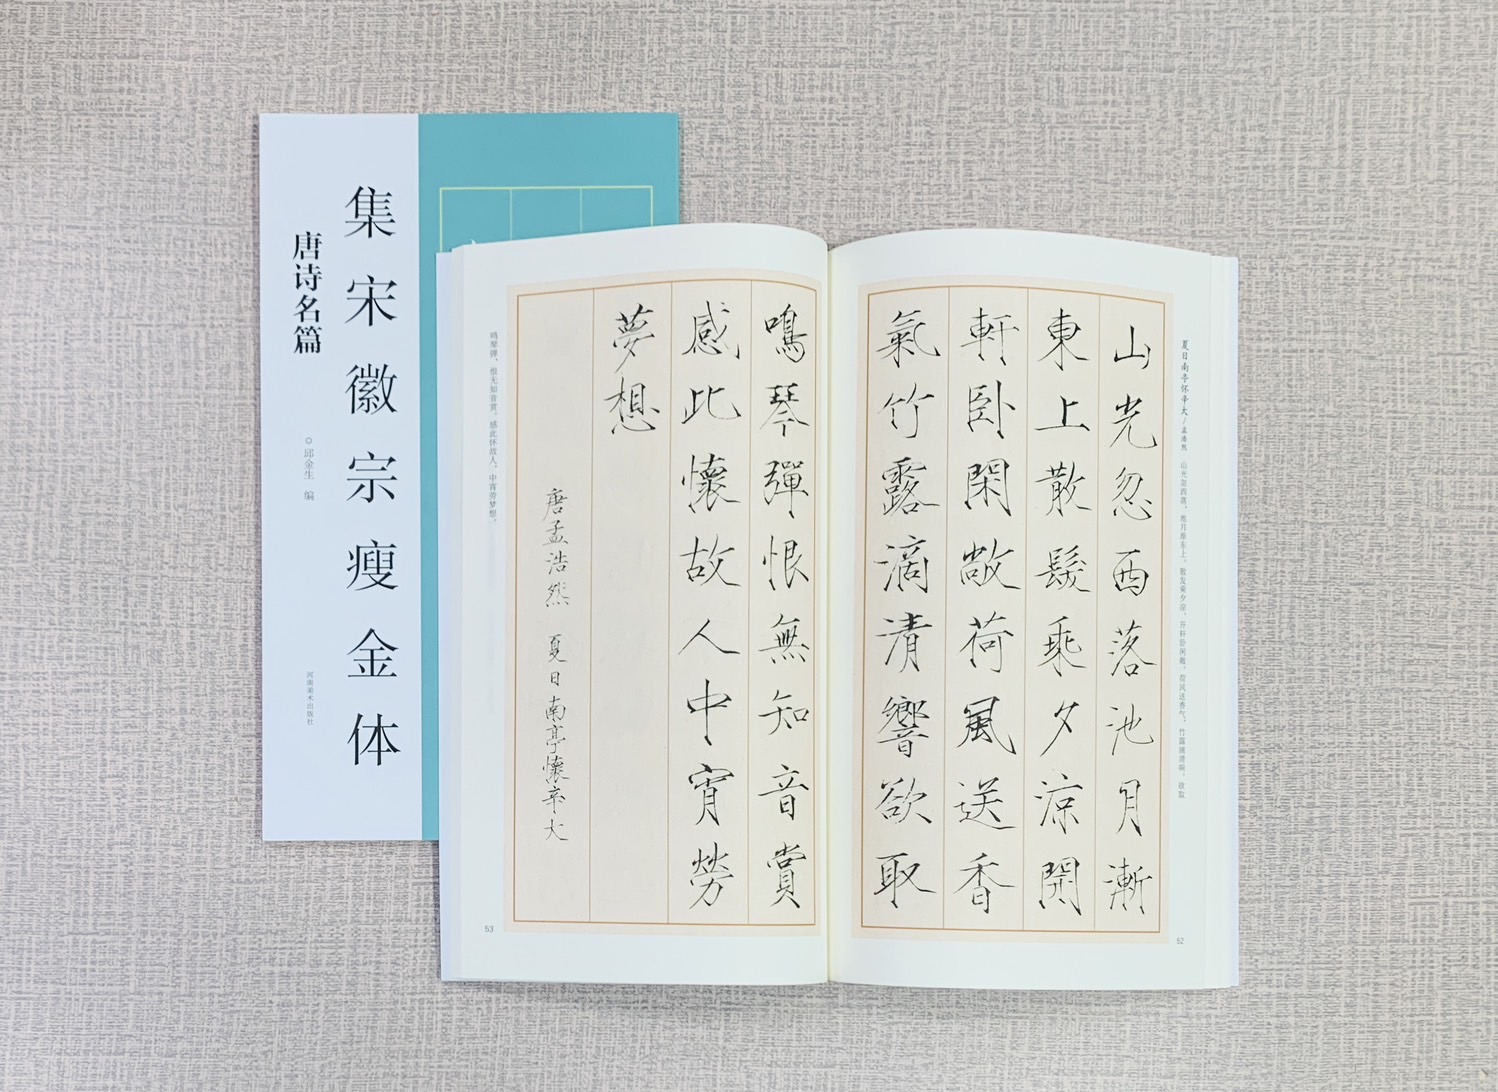 集宋徽宗瘦金体
唐诗名篇
◎邱金生 编
河南美术出版社
夏日南亭怀辛大/孟浩然 山光忽西落，池月渐东上。散发乘夕凉，开轩卧闲敞。荷风送香气，竹露滴清响。欲取
山光忽西落池月漸
東上散髮乘夕涼開
軒卧閑敞荷風送香
氣竹露滴清響欲取
52
鳴琴彈恨無知音賞
感此懷故人中宵勞
夢想
唐孟浩然 夏日南亭懷辛大
鸣琴弹，恨无知音赏。感此怀故人，中宵劳梦想。
53